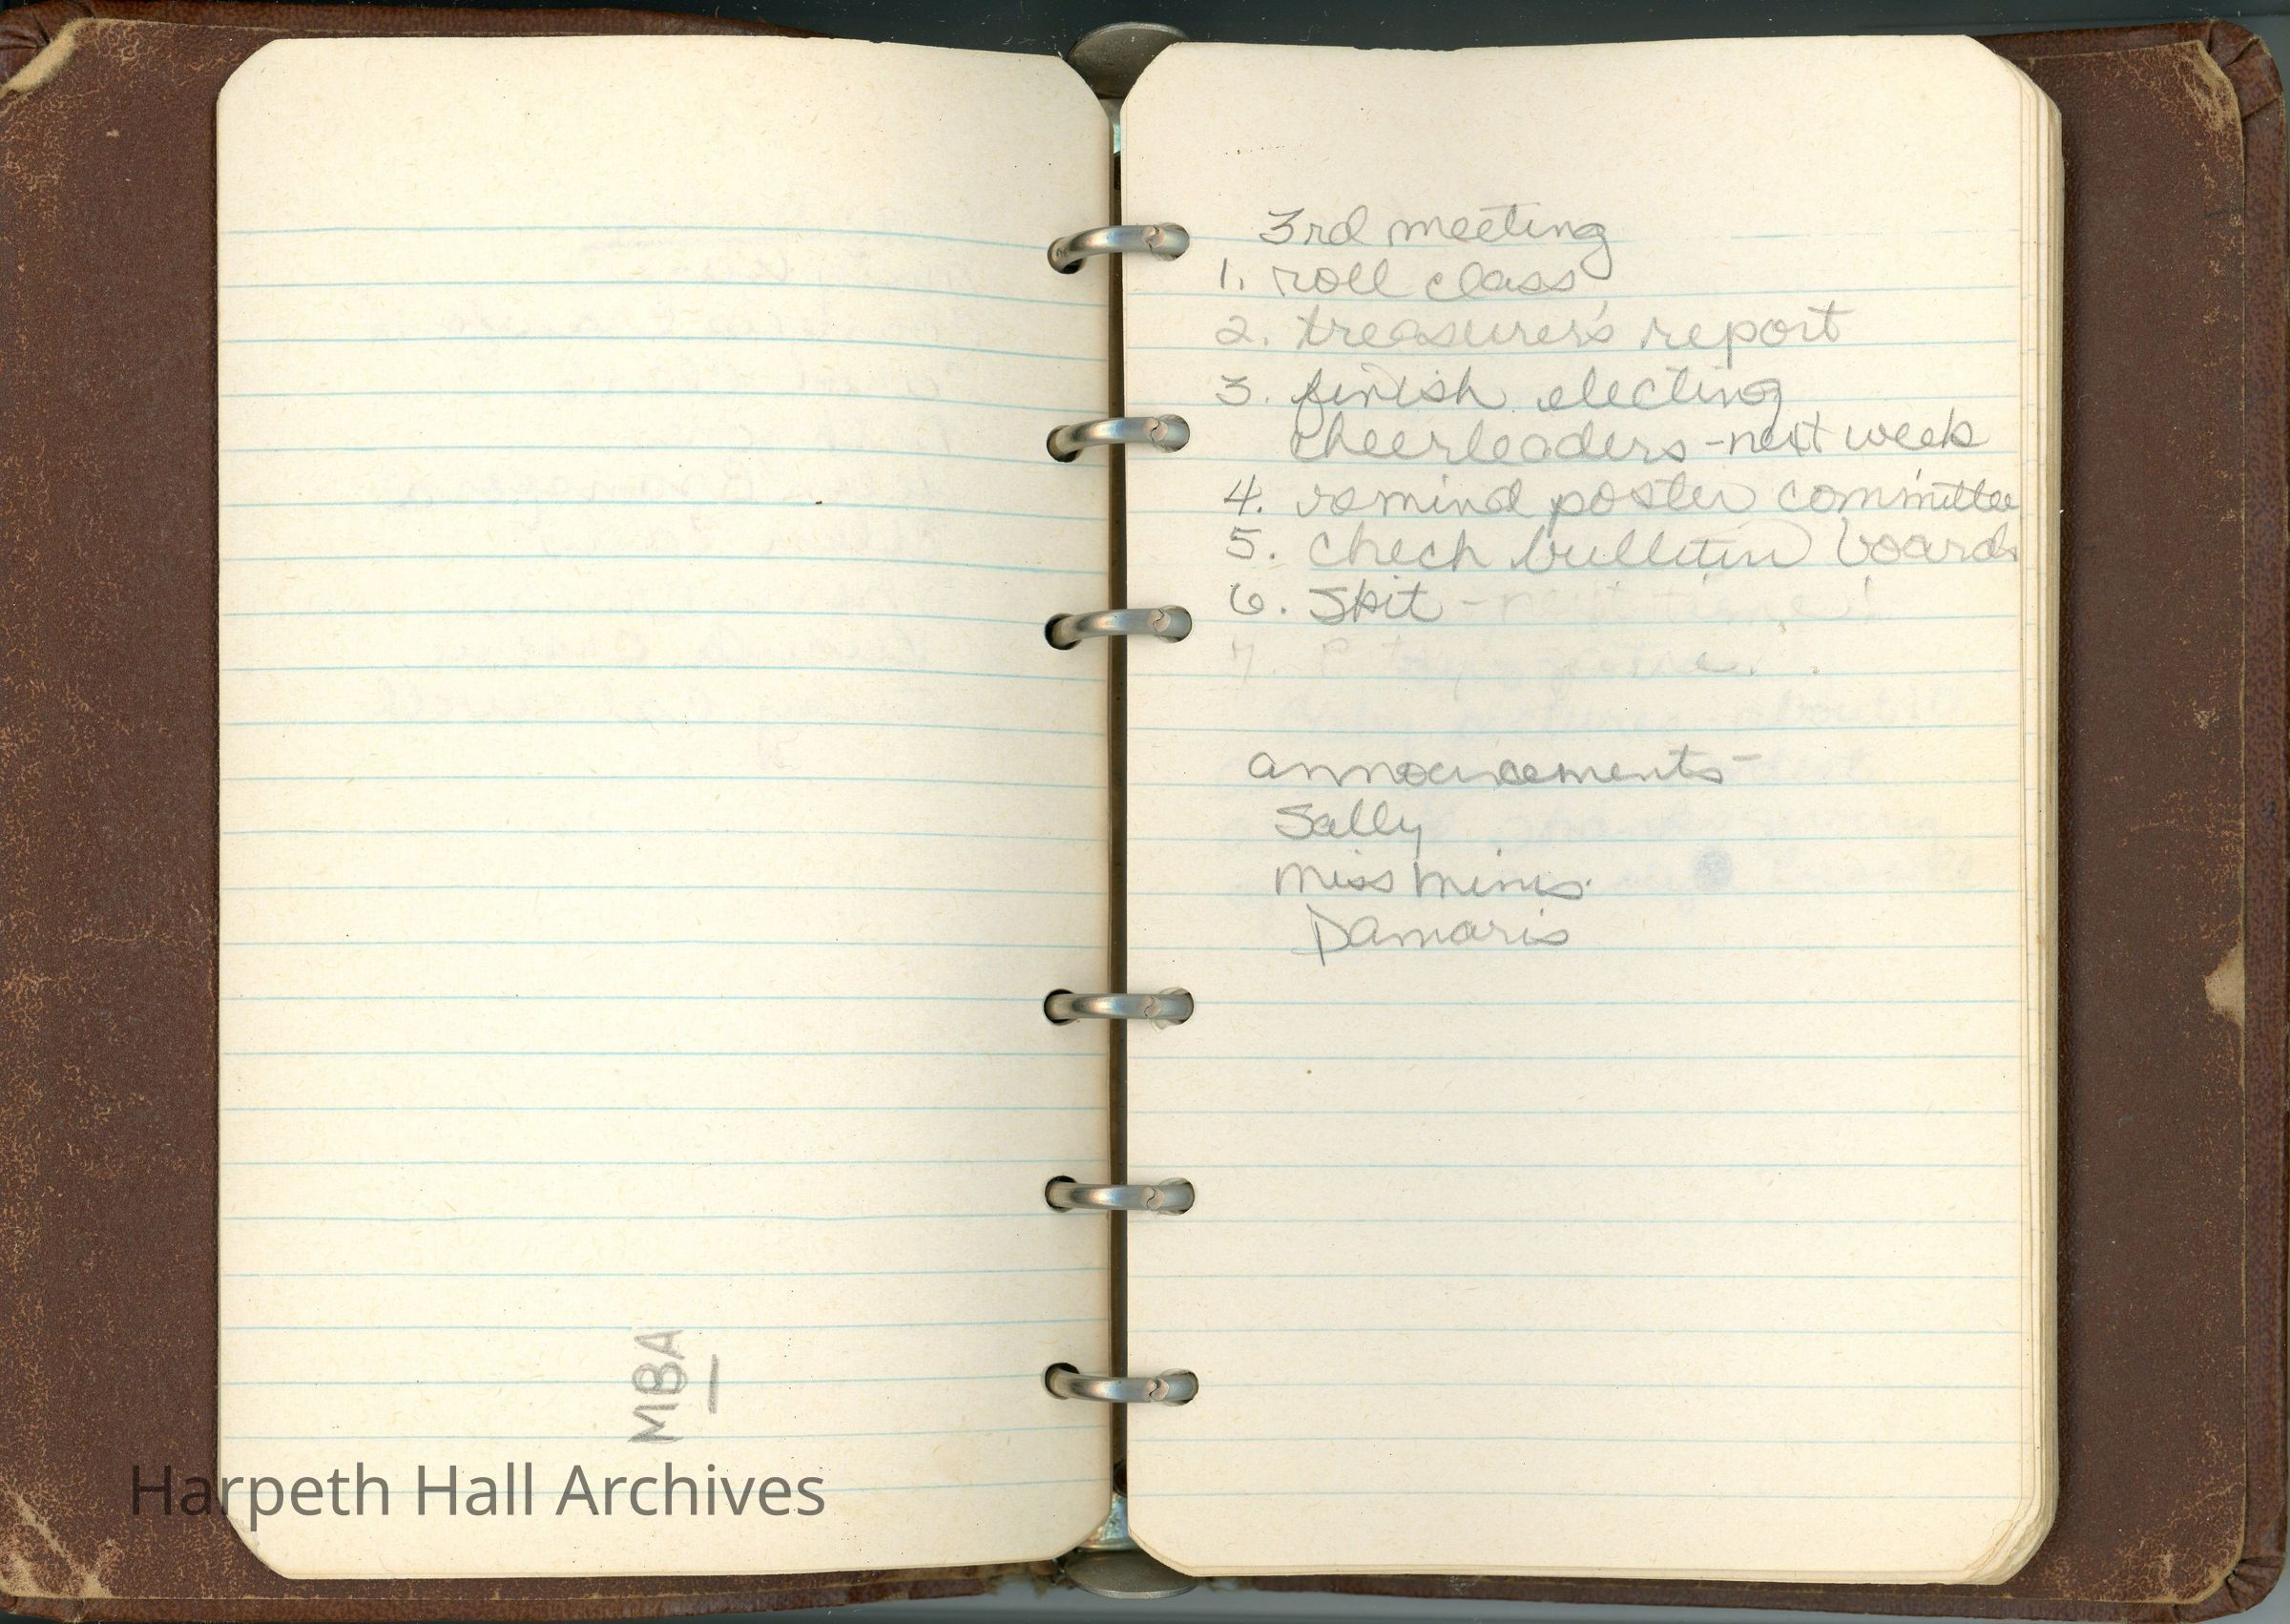 MBA
Harpeth Hall Archives
3rd meeting
1. roll class
2. treasurer's report
3. finish electing
cheerleaders - next week
4. remind poster committee
5. check bulletin boards
6. Skit - next time!
7.
announcements -
Sally
Miss Minis
Damaris